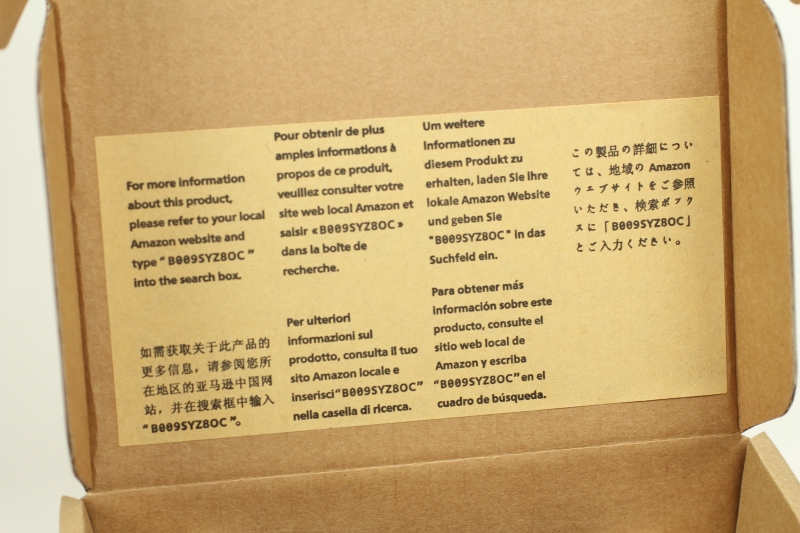 For more information
about this product,
please refer to your local
Amazon website and
type “B009SYZ8OC”
into the search box.
Pour obtenir de plus
amples informations à
propos de ce produit,
veuillez consulter votre
site web local Amazon et
saisir «B009SYZ8OC»
dans la boîte de
recherche.
Um weitere
Informationen zu
diesem Produkt zu
erhalten, laden Sie Ihre
lokale Amazon Website
und geben Sie
"B009SYZ8OC" in das
Suchfeld ein.
この製品の詳細につい
ては、地域の Amazon
ウェブサイトをご参照
いただき、検索ボック
スに「B009SYZ8OC」
とご入力ください。
如需获取关于此产品的
更多信息，请参阅您所
在地区的亚马逊中国网
站，并在搜索框中输入
“B009SYZ8OC”。
Per ulteriori
informazioni sul
prodotto, consulta il tuo
sito Amazon locale e
inserisci“B009SYZ8OC”
nella casella di ricerca.
Para obtener más
información sobre este
producto, consulte el
sitio web local de
Amazon y escriba
“B009SYZ8OC”en el
cuadro de búsqueda.